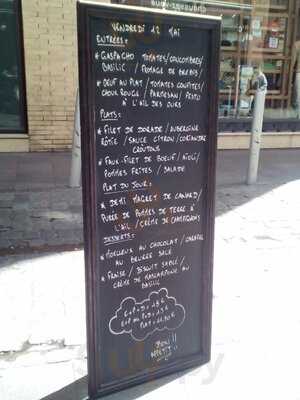 VENDREDI 12 MAI
ENTRÉES:
* GASPACHO TOMATES/CONCOMBRES/
BASILIC / FROMAGE DE BREBIS
* OEUF AU PLAT / TOMATES CONFITES /
CHOUX ROUGE / PARMESAN / PESTO
À L'AIL DES OURS
PLATS:
* FILET DE DORADE / AUBERGINE
RÔTIE / SAUCE CITRON/CORIANDRE
CROUTONS
* FAUX-FILET DE BOEUF / AÏOLI /
POMMES FRITES / SALADE
PLAT DU JOUR:
* DEMI MAGRET DE CANARD/
PURÉE DE POMMES DE TERRE À
L'AIL / CRÈME DE CHAMPIGNONS
DESSERTS:
* MOELLEUX AU CHOCOLAT / CARAMEL
AU BEURRE SALÉ
* FRAISE / BISCUIT SABLÉ /
CRÈME DE MASCARPONE AU
BASILIC
BON
APPÉTIT